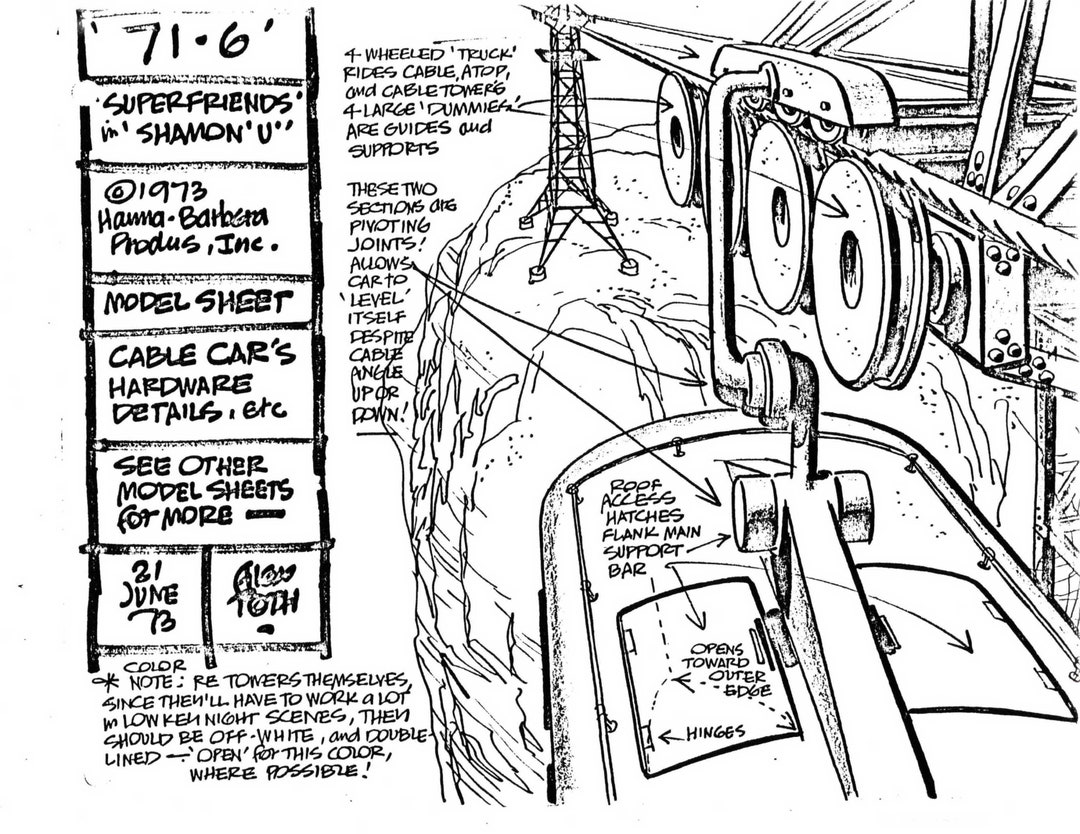 '71·6'
'SUPERFRIENDS'
in 'SHAMON 'U''
©1973
Hanna-Barbera
Produs, Inc.
MODEL SHEET
CABLE CAR'S
HARDWARE
DETAILS, etc
SEE OTHER
MODEL SHEETS
for MORE —
21
JUNE
73
Alex
TOTH
COLOR
* NOTE: RE TOWERS THEMSELVES,
SINCE THEY'LL HAVE TO WORK a LOT
in LOW KEY NIGHT SCENES, THEY
SHOULD BE OFF-WHITE, and DOUBLE-
LINED — 'OPEN' for THIS COLOR,
WHERE POSSIBLE!
4-WHEELED 'TRUCK'
RIDES CABLE, ATOP,
and CABLE TOWERS
4-LARGE 'DUMMIES'
ARE GUIDES and
SUPPORTS
THESE TWO
SECTIONS are
PIVOTING
JOINTS!
ALLOWS
CAR TO
'LEVEL'
ITSELF
DESPITE
CABLE
ANGLE
UP OR
DOWN!
ROOF
ACCESS
HATCHES
FLANK MAIN
SUPPORT
BAR
OPENS
TOWARD
OUTER
EDGE
HINGES